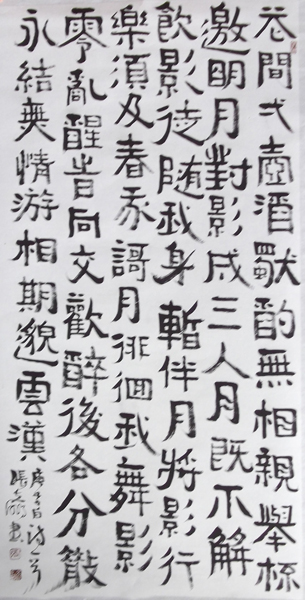 花間弌壺酒獨酌無相親舉杯
邀明月對影成三人月既不解
飲影徒隨我身暫伴月將影行
樂須及春我謌月徘徊我舞影
零亂醒旹同交歡醉後各分散
永結無情游相期邈雲漢
唐李白詩一首
張書